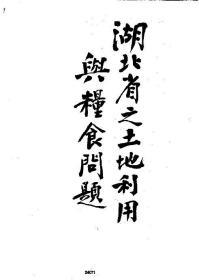 湖北省之土地利用
與糧食問題
24071